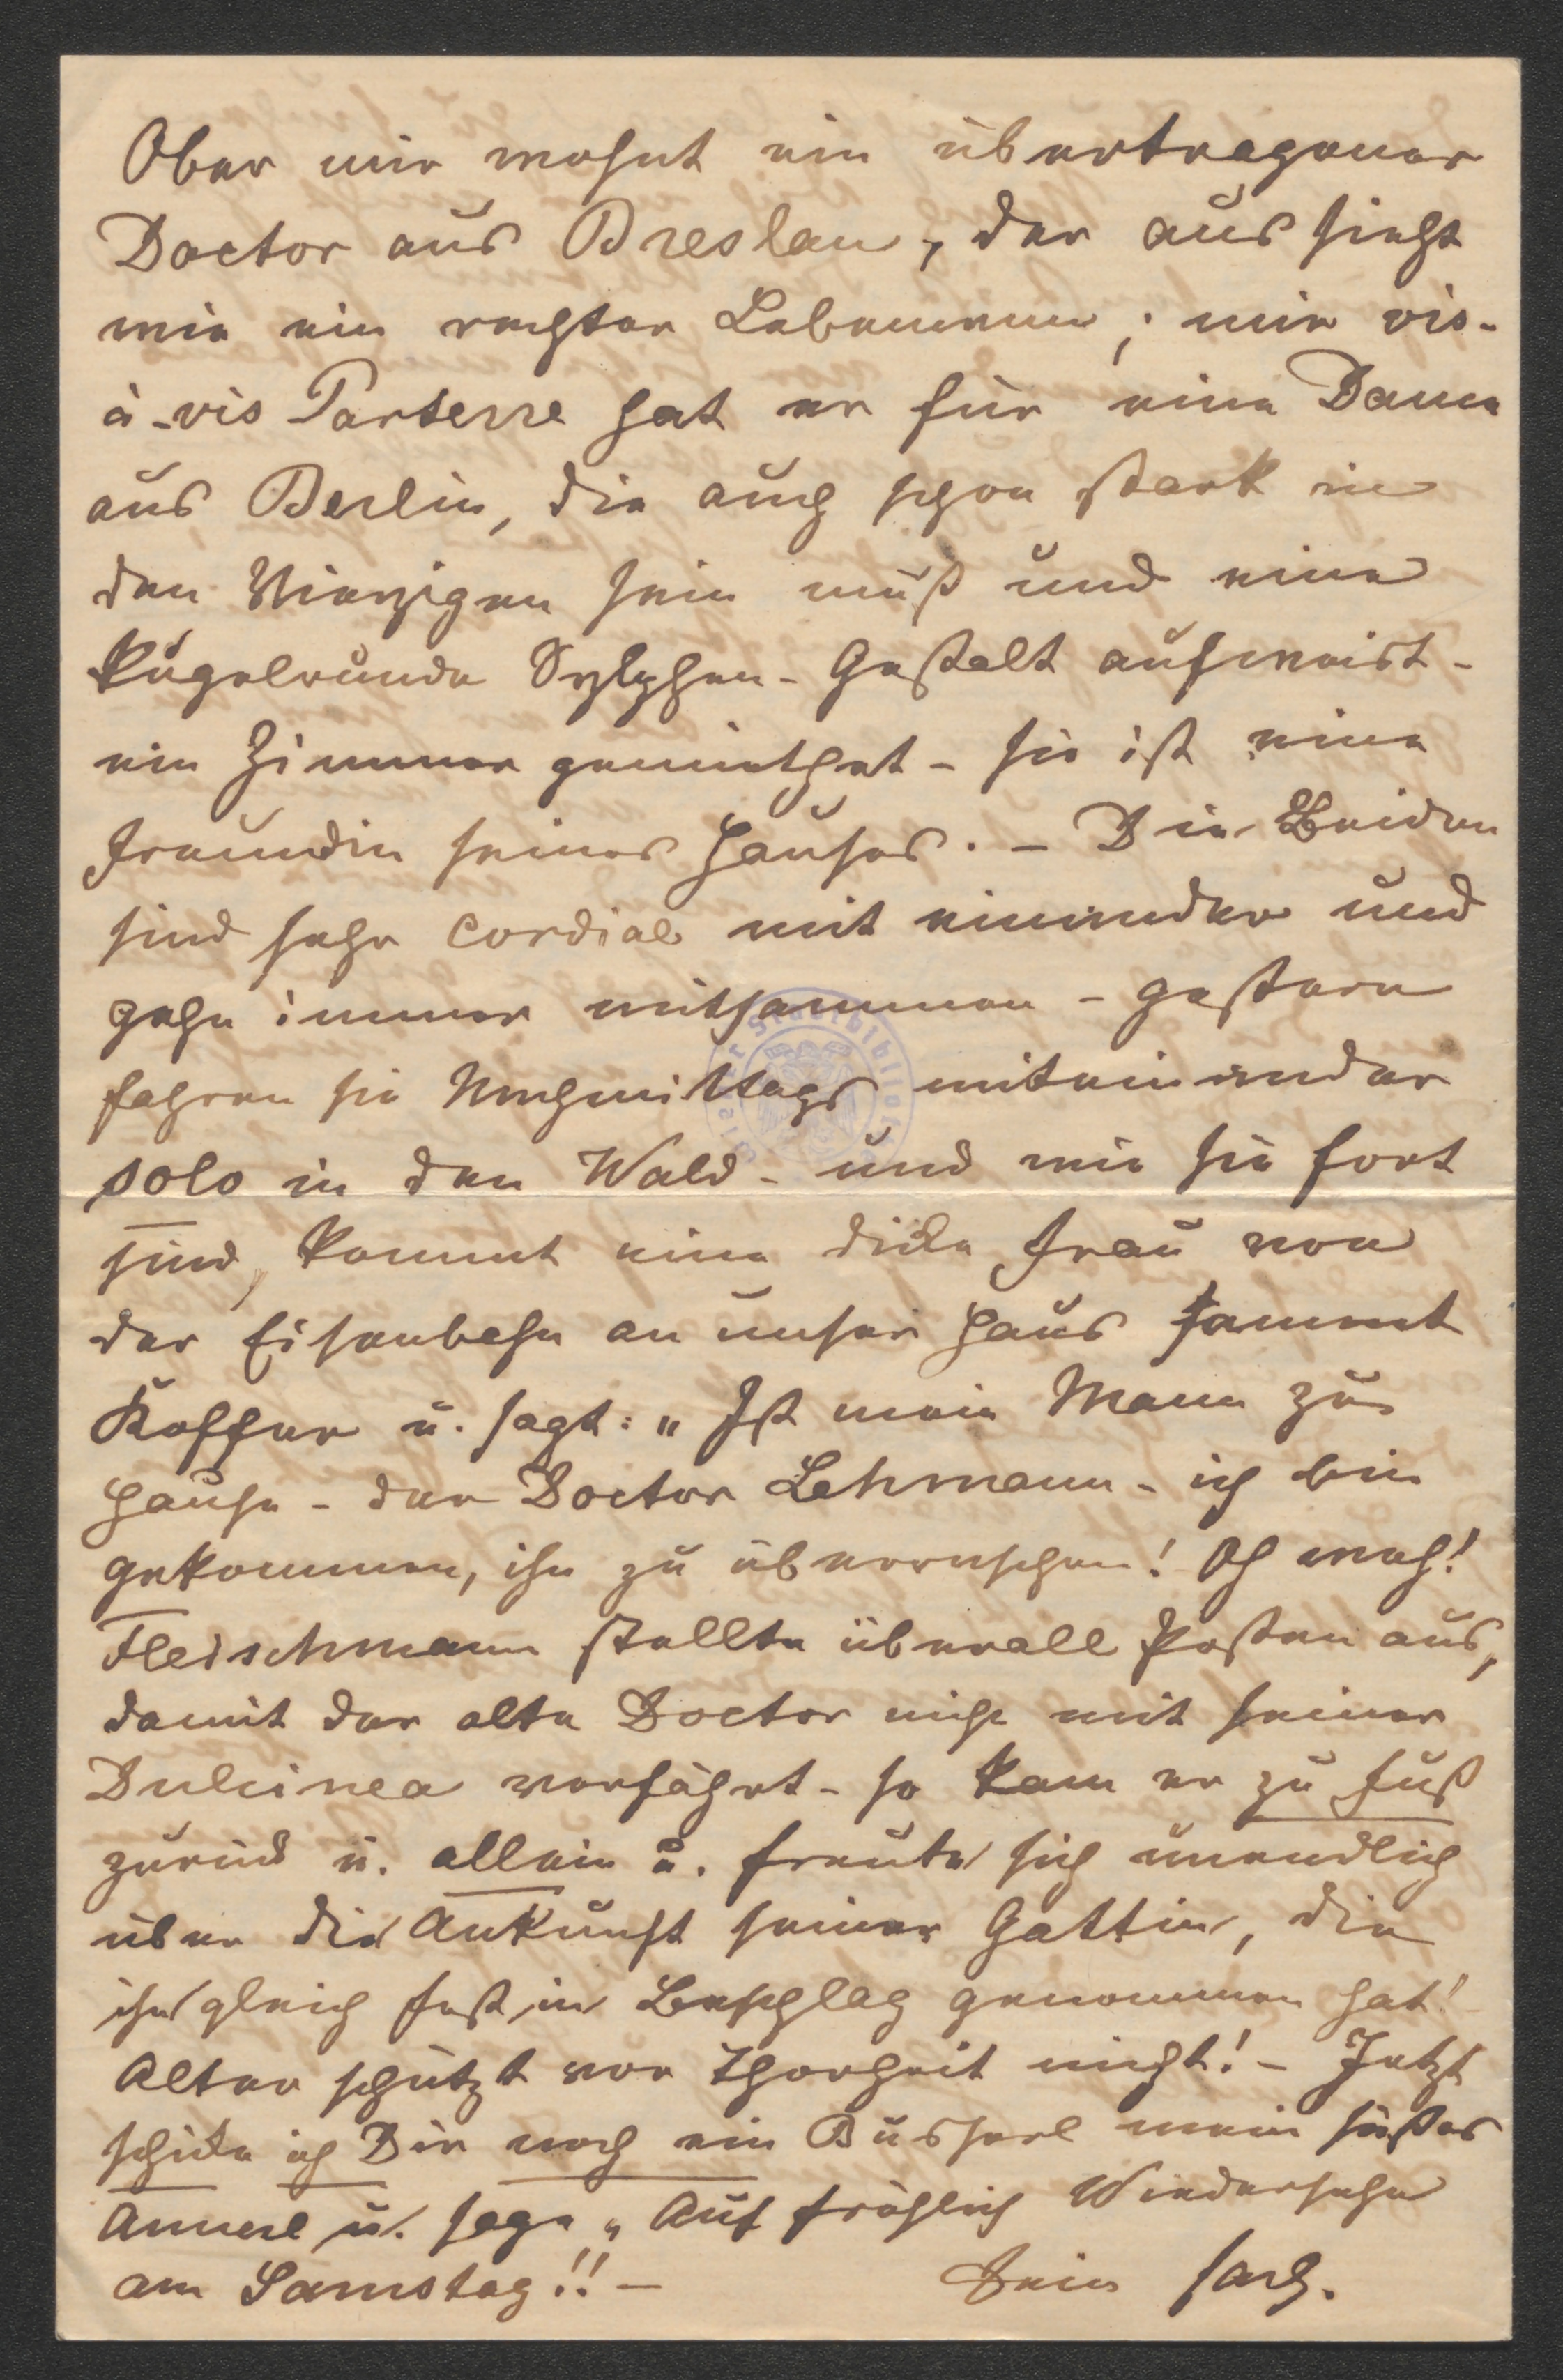 Ober mir wohnt ein übertragener
Doctor aus Breslau, der aus sieht
wie ein rechter Lebemann; mir vis-
à-vis Parterre hat er für eine Dame
aus Berlin, die auch schon stark in
den Vierzigen sein muß und eine
kugelrunde Sylphen-Gestalt aufweist -
ein Zimmer gemiethet - sie ist eine
Freundin seines Hauses. - Die Beiden
sind sehr cordial mit einander und
gehn immer mitsammen - gestern
fahren sie Nachmittags miteinander
solo in den Wald - und wie sie fort
sind, kommt eine dicke Frau von
der Eisenbahn an unser Haus sammt
Koffer u. sagt: "Ist mein Mann zu
Hause - der Doctor Lehmann - ich bin
gekommen, ihn zu überraschen! Oh weh!
Fleischmann stellte überall Posten aus,
damit der alte Doctor nicht mit seiner
Dulcinea vorfährt - so kam er zu Fuß
zurück u. allein u. freute sich unendlich
über die Ankunft seiner Gattin, die
ihn gleich fest in Beschlag genommen hat!
Alter schützt vor Thorheit nicht! - Jetzt
schicke ich Dir noch ein Busserl mein süßes
Annerl u. sage "Auf fröhlich Wiedersehn
am Samstag!! - Dein